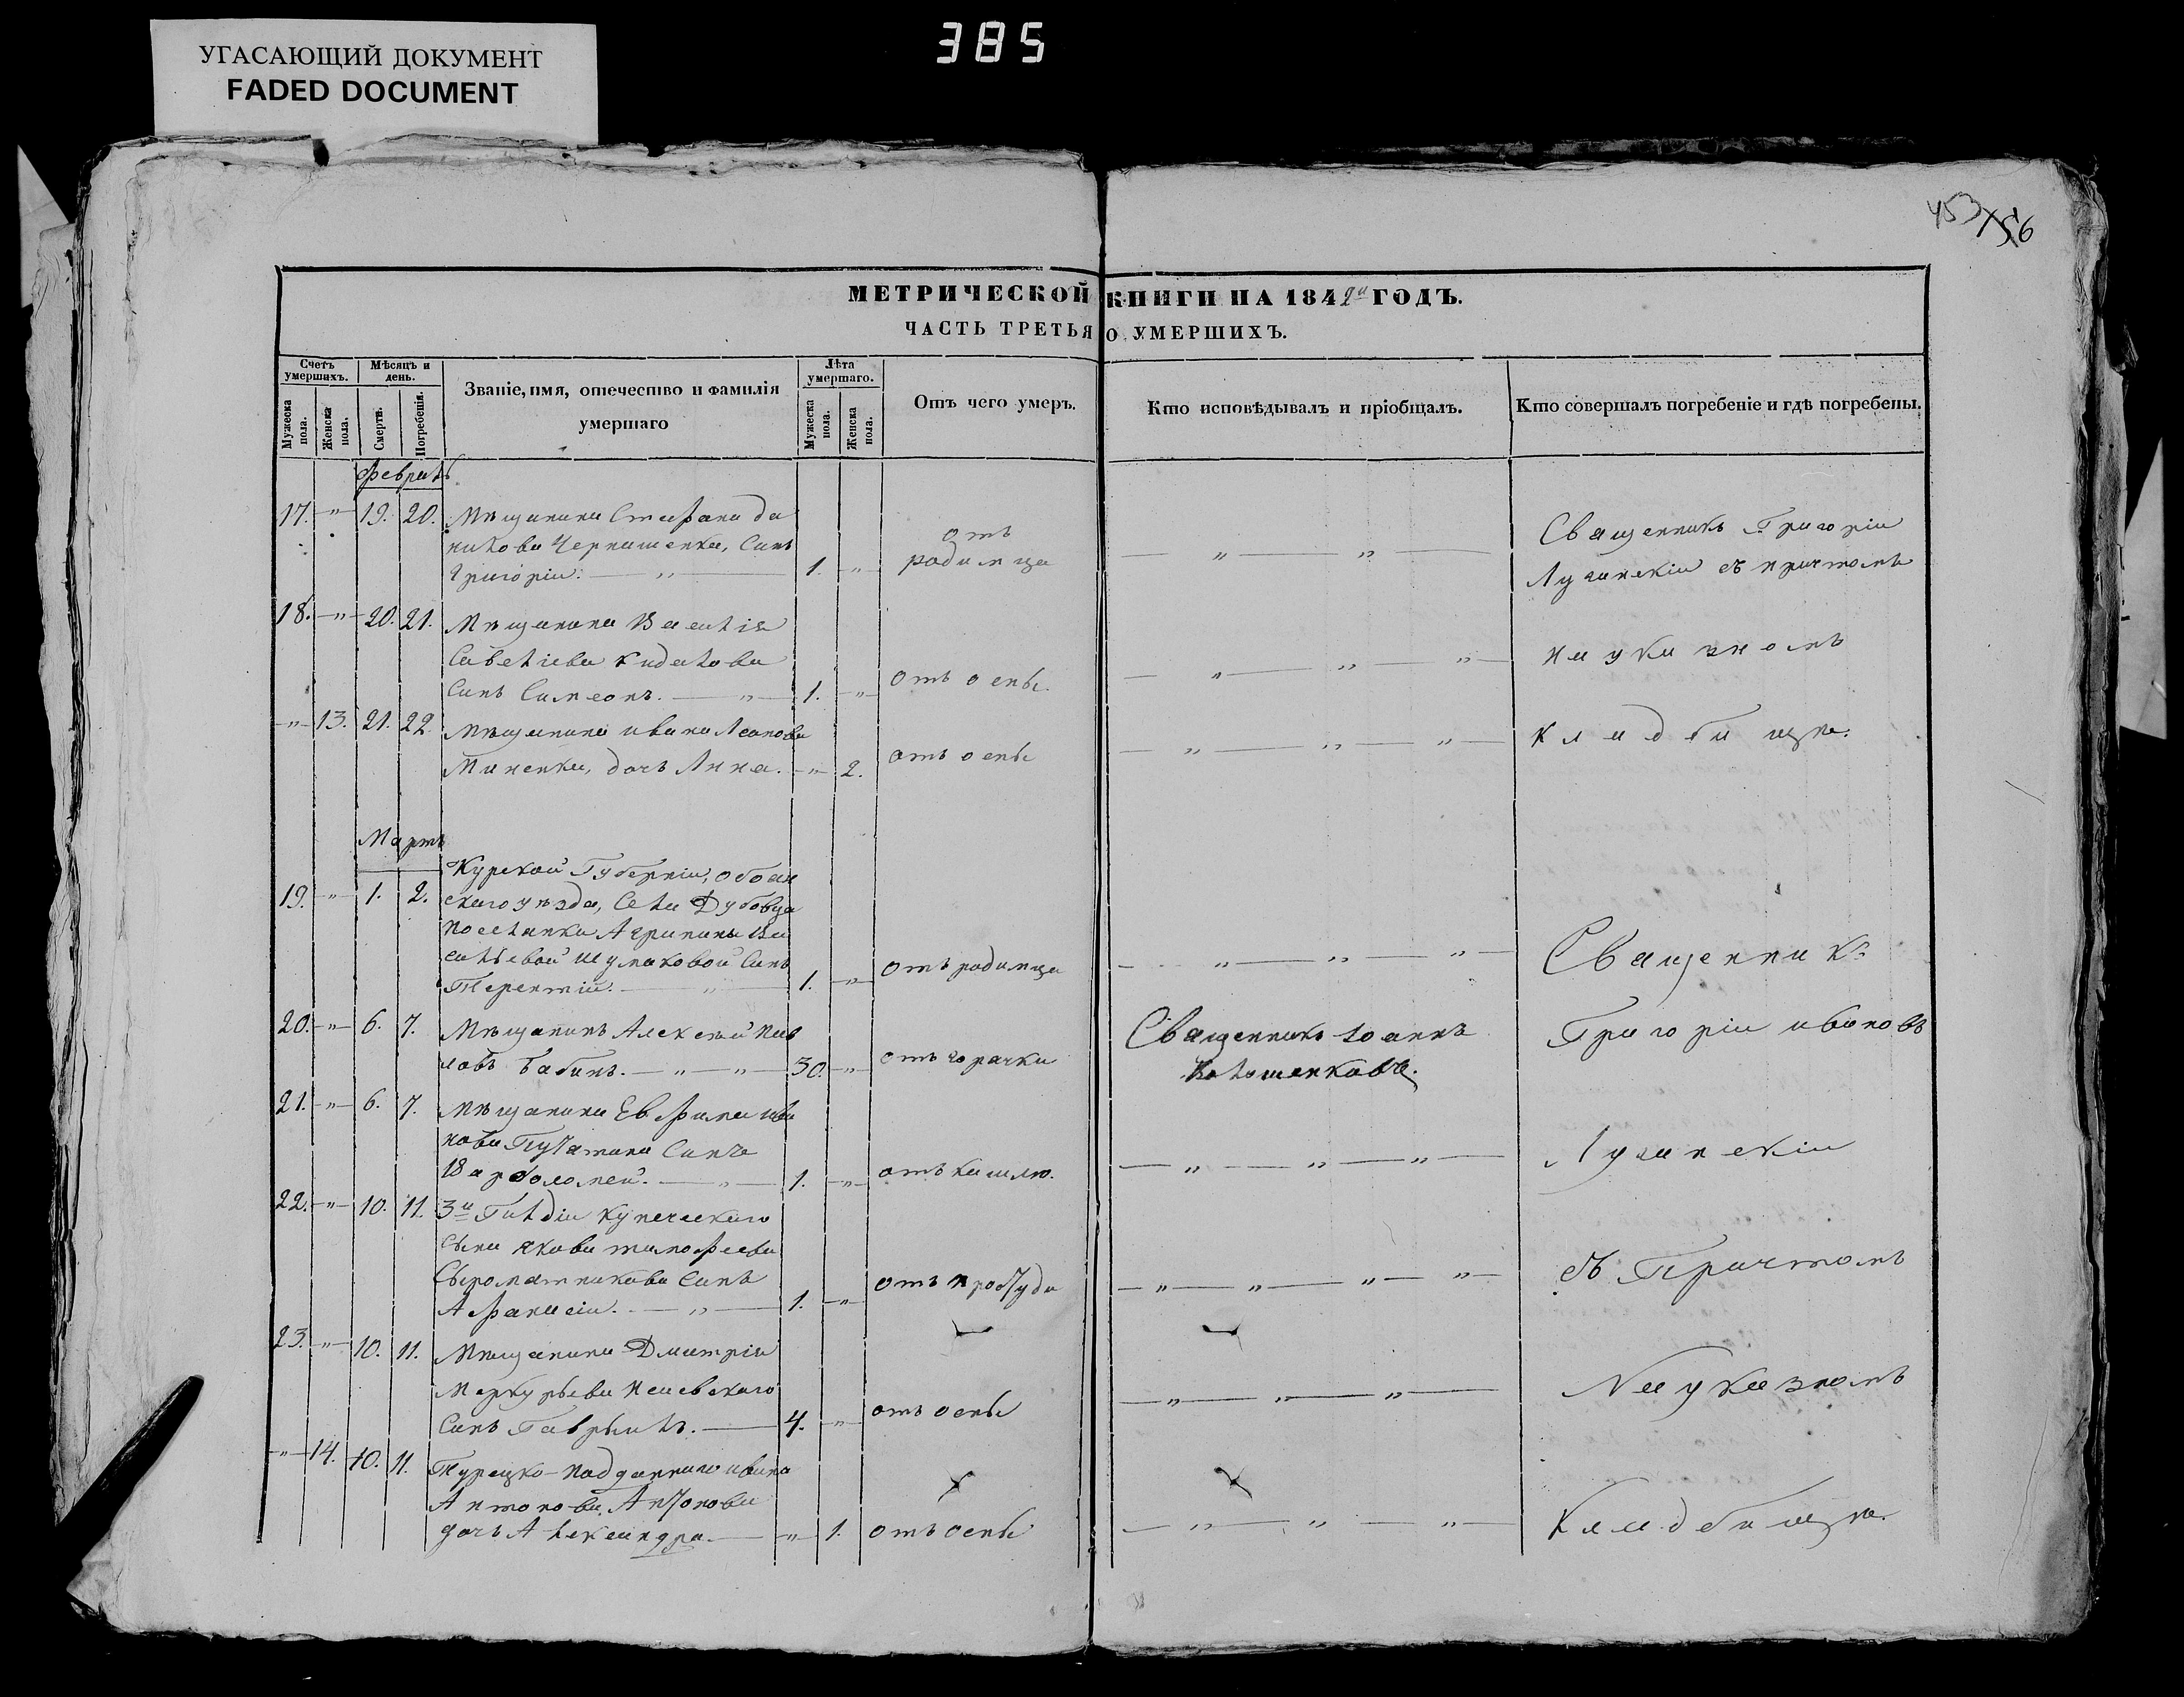 385
УГАСАЮЩИЙ ДОКУМЕНТ
FADED DOCUMENT
453
156
МЕТРИЧЕСКОЙ КНИГИ НА 1842й ГОДЪ.
ЧАСТЬ ТРЕТЬЯ О УМЕРШИХЪ.
Счетъ умершихъ.
Мужеска пола.
Женска пола.
Мѣсяцъ и день.
Смерти.
Погребенія.
Званіе, имя, отечество и фамилія умершаго
Лѣта умершаго.
Мужеска пола.
Женска пола.
Отъ чего умеръ.
Кто исповѣдывалъ и пріобщалъ.
Кто совершалъ погребеніе и гдѣ погребены.
Февраль
17. " 19. 20. Мѣщанина Стефана Да
никова Чернишенка, Синъ
Григорій. " 1. " отъ родимца " " Священникъ Григорій
Лузинскій съ причтомъ
18. " 20. 21. Мѣщанина Василія
Савелієва Кидалова
Синъ Симеонъ. " 1. " отъ оспы. " " " на указномъ
" 13. 21. 22. Мѣщанина Ивана Леонова
Миненка, дочь Анна. " 2. отъ оспы " " " кладбищѣ.
Мартъ
Курской Губерніи, Обоян
19. " 1. 2. скаго уѣзда, Села Дубовца
поселянки Агрипины Ва
сильевой Шумаковой Синъ
Терентій. " 1. " отъ родимца " " " Священникъ
20. " 6. 7. Мѣщанинъ Алексѣй Пав
ловъ Бабинъ. " " 30. " отъ горячки Священникъ Іоаннъ
Волошенковъ. Григорій Ивановъ
21. " 6. 7. Мѣщанина Евфима Ива
нова Путатина Синъ
Варфоломей. " 1. " отъ кашлю. " " " Лузинскій
22. " 10. 11. 3й Гильдіи Купеческаго
сына Якова Тимофеева
Сыроматникова Синъ
Афанасій. " 1. " отъ простуди " " " " съ Причтомъ
23. " 10. 11. Мѣщанина Дмитрія
Меркурьева
Синъ Гаврыилъ. 4. " отъ оспы " " " На указномъ
" 14. 10. 11. Турецко-подданнаго Ивана
Антонова, Антонова
дочь Александра. " 1. отъ оспы " " " Кладбищѣ.